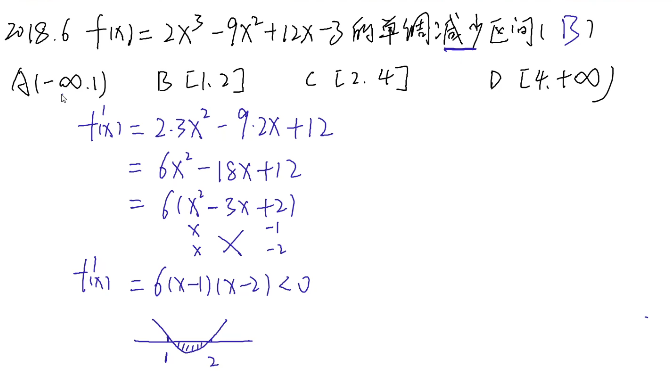 2018.6 f(x)=2x³-9x²+12x-3的单调减少区间(B)
A(-∞.1) B[1.2] C[2.4] D[4.+∞)
f'(x)=2·3x²-9·2x+12
=6x²-18x+12
=6(x²-3x+2)
x -1
x -2
f'(x)=6(x-1)(x-2)<0
1 2